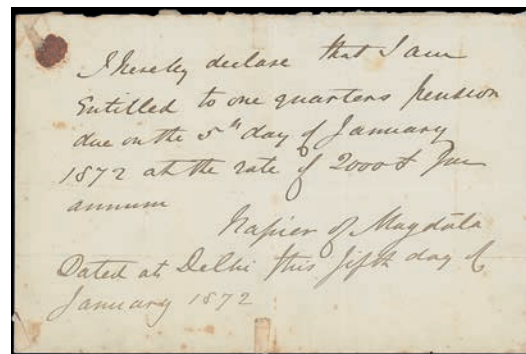 I hereby declare that I am
Entitled to one quarters pension
due on the 5th day of January
1872 at the rate of 2000£ per
annum
Napier of Magdala
Dated at Delhi this fifth day of
January 1872